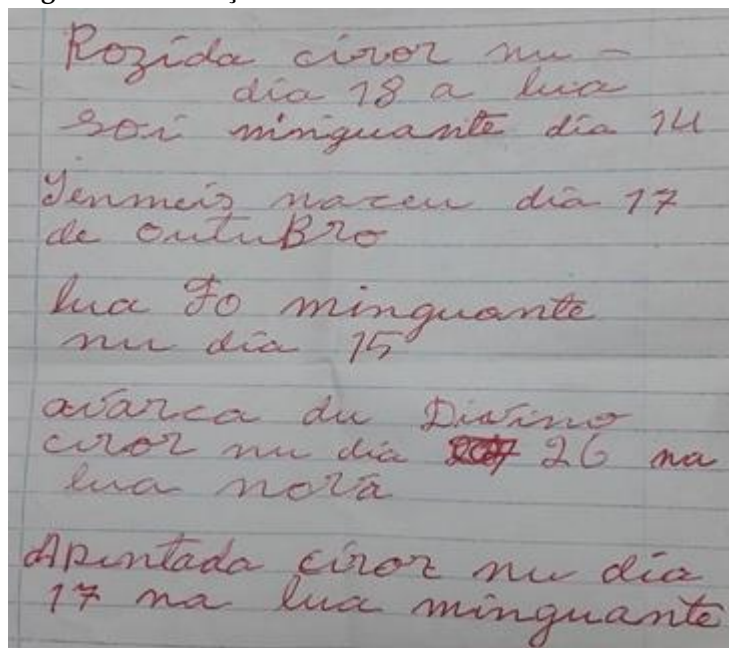 Rozida ciror nu -
dia 18 a lua
soi minguante dia 14
Jenmeis naceu dia 17
de OutuBro
lua Fo minguante
nu dia 15
avarca du Divino
ciror nu dia 26 na
lua nova
Apintada ciror nu dia
17 na lua minguante